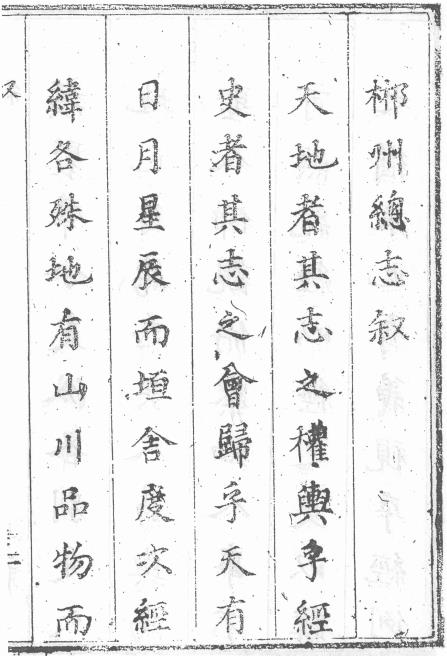 郴州總志叙
天地者其志之權輿乎經
史者其志之會歸乎天有
日月星辰而垣舍度次經
緯各殊地有山川品物而